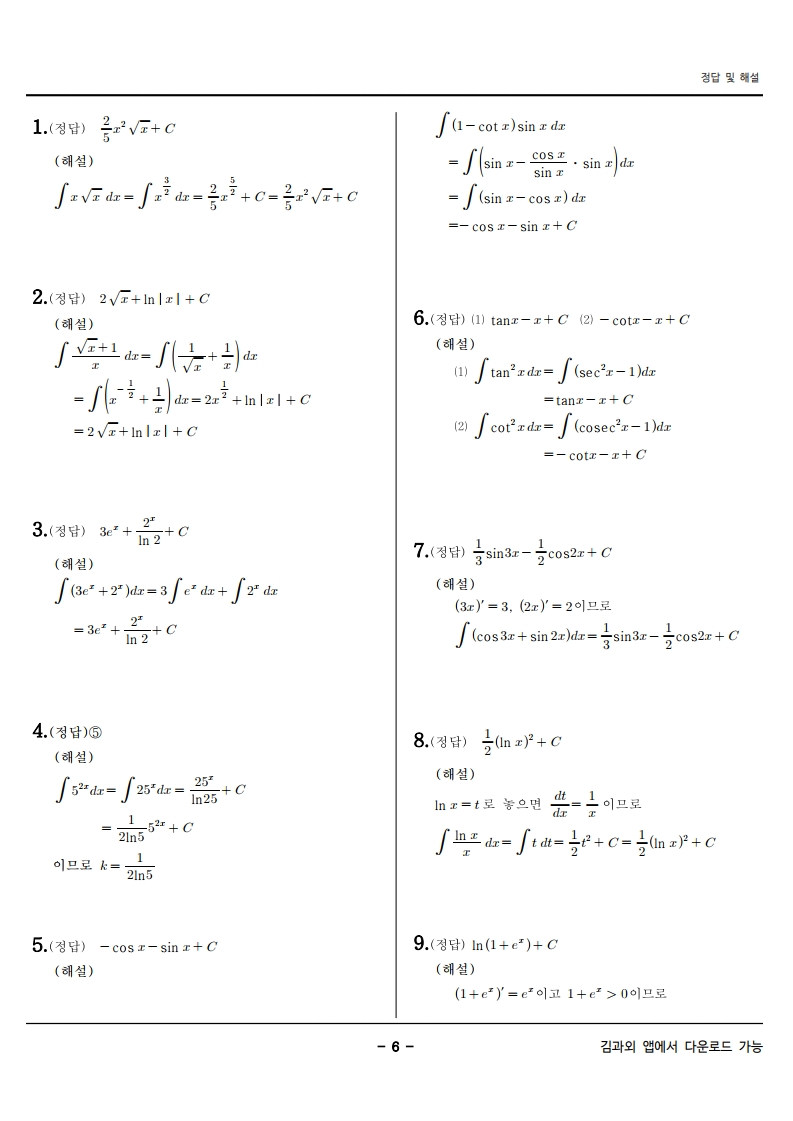 정답 및 해설
1.(정답) 2/5 x²√x + C
(해설)
∫ x√x dx = ∫ x^(3/2) dx = 2/5 x^(5/2) + C = 2/5 x²√x + C
2.(정답) 2√x + ln|x| + C
(해설)
∫ (√x+1)/x dx = ∫ (1/√x + 1/x) dx
= ∫ (x^(-1/2) + 1/x) dx = 2x^(1/2) + ln|x| + C
= 2√x + ln|x| + C
3.(정답) 3eˣ + 2ˣ/ln 2 + C
(해설)
∫ (3eˣ + 2ˣ)dx = 3∫ eˣ dx + ∫ 2ˣ dx
= 3eˣ + 2ˣ/ln 2 + C
4.(정답)⑤
(해설)
∫ 5²ˣdx = ∫ 25ˣdx = 25ˣ/ln25 + C
= 1/(2ln5) 5²ˣ + C
이므로 k = 1/(2ln5)
5.(정답) −cos x − sin x + C
(해설)
∫ (1 − cot x) sin x dx
= ∫ (sin x − cos x/sin x · sin x) dx
= ∫ (sin x − cos x) dx
= −cos x − sin x + C
6.(정답) ⑴ tanx − x + C ⑵ −cotx − x + C
(해설)
⑴ ∫ tan²x dx = ∫ (sec²x − 1)dx
= tanx − x + C
⑵ ∫ cot²x dx = ∫ (cosec²x − 1)dx
= −cotx − x + C
7.(정답) 1/3 sin3x − 1/2 cos2x + C
(해설)
(3x)′ = 3, (2x)′ = 2이므로
∫ (cos3x + sin2x)dx = 1/3 sin3x − 1/2 cos2x + C
8.(정답) 1/2 (ln x)² + C
(해설)
ln x = t로 놓으면 dt/dx = 1/x 이므로
∫ ln x/x dx = ∫ t dt = 1/2 t² + C = 1/2 (ln x)² + C
9.(정답) ln(1 + eˣ) + C
(해설)
(1 + eˣ)′ = eˣ이고 1 + eˣ > 0이므로
− 6 −
김과외 앱에서 다운로드 가능